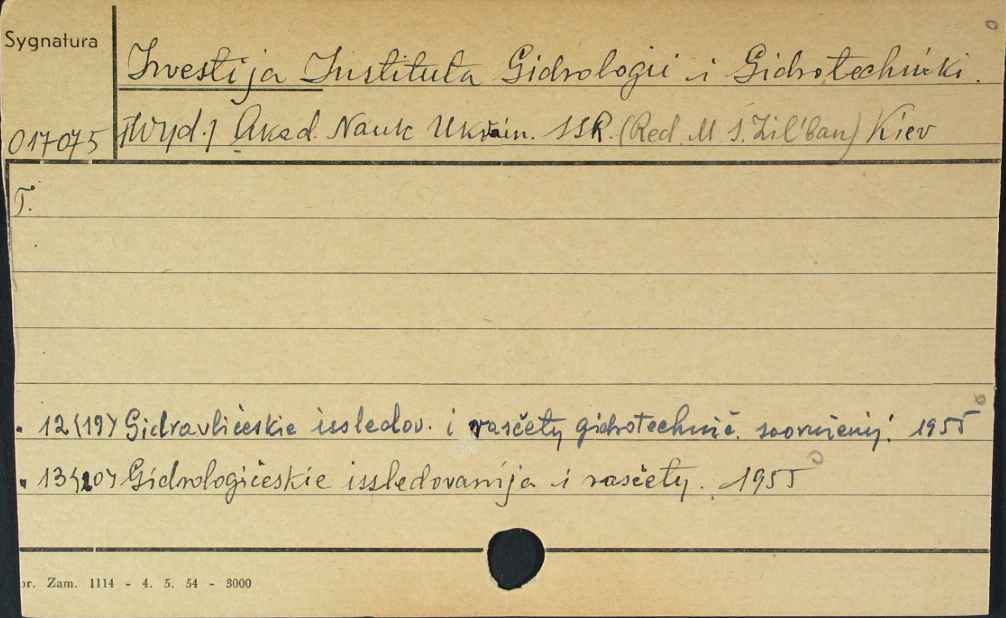 Sygnatura
Izvestija Instituta Gidrologii i Gidrotechniki.
017075 [Wyd.] Akad. Nauk Ukrain. SSR. (Red. M. S. Žil'ban) Kiev
T.
12(19) Gidravličeskie issledov. i rasčety gidrotechnič. sooruženij. 1955
13(20) Gidrologičeskie issledovanija i rasčety. 1955
or. Zam. 1114 - 4. 5. 54 - 3000